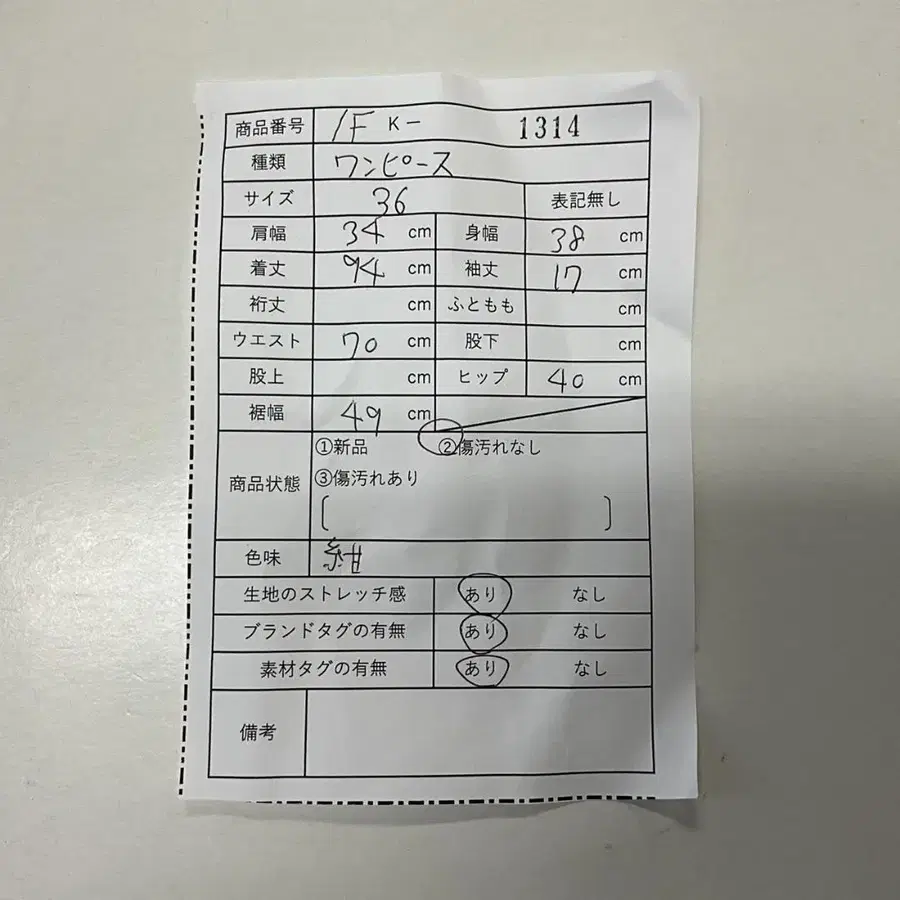 商品番号 1F K- 1314
種類 ワンピース
サイズ 36 表記無し
肩幅 34 cm 身幅 38 cm
着丈 94 cm 袖丈 17 cm
裄丈 cm ふともも cm
ウエスト 70 cm 股下 cm
股上 cm ヒップ 40 cm
裾幅 49 cm
①新品 ②傷汚れなし
商品状態 ③傷汚れあり
[ ]
色味
生地のストレッチ感 あり なし
ブランドタグの有無 あり なし
素材タグの有無 あり なし
備考